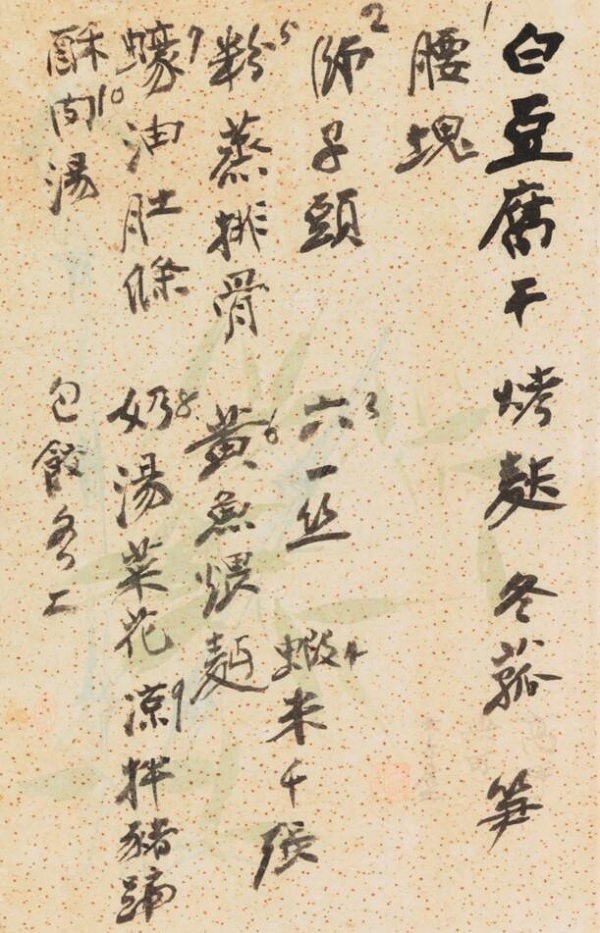 白豆腐干 烤麩 冬菰 笋
腰塊1
師子頭2 六一丝3 蝦米千張4
粉蒸排骨5 黄魚煨麵6
蠔油肚條7 奶湯菜花8 涼拌豬蹄9
酥肉湯10 包餃